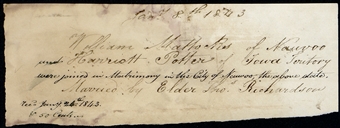 Jany 8th 1843
William Mathocks of Nauvoo
and Harriott Potter of Iowa Teritory
were joined in Matrimony in the City of Nauvoo, the above date.
Married by Elder Richardson
Recd Jany 24th 1843.
50 Cents